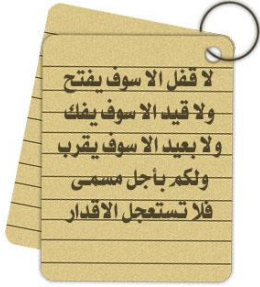 لا قفل الا سوف يفتح
ولا قيد الا سوف يفك
ولا بعيد الا سوف يقرب
ولكم بأجل مسمى
فلا تستعجل الاقدار